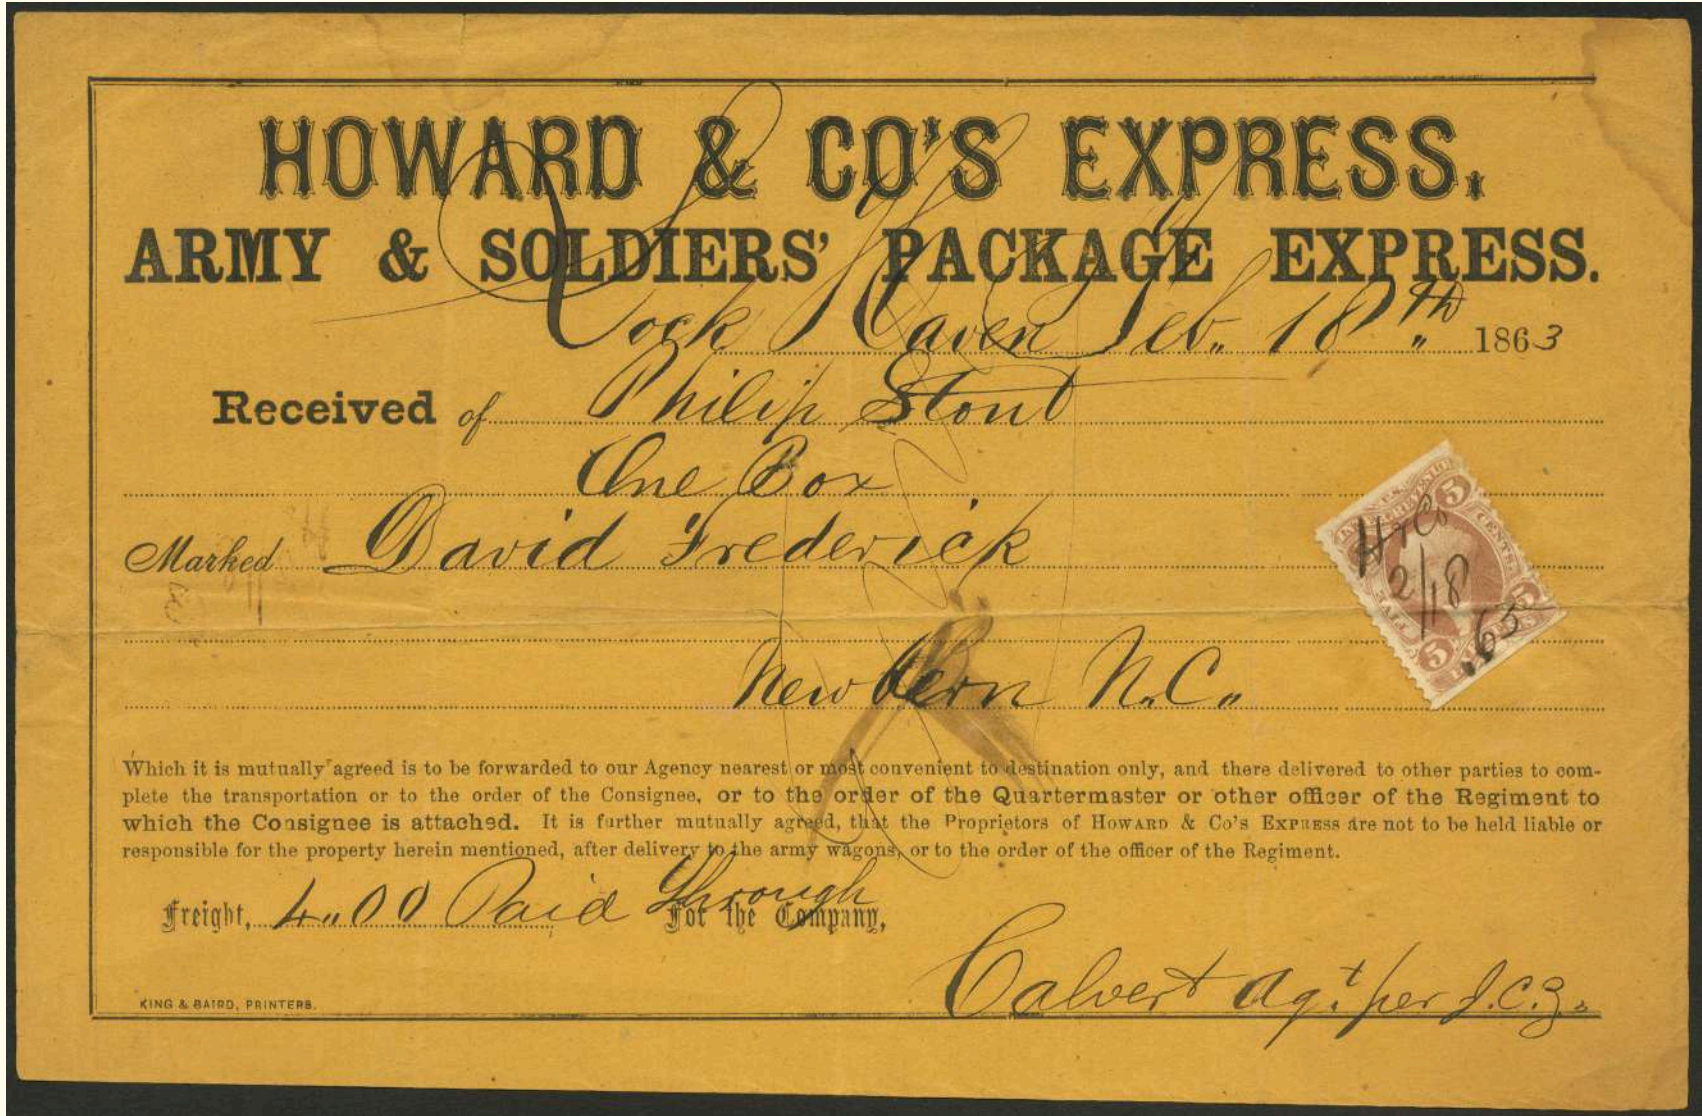 HOWARD & CO'S EXPRESS.
ARMY & SOLDIERS' PACKAGE EXPRESS.
Lock Haven Feb. 18th 1863
Received of Philip Stout
One Box
Marked David Frederick
New Bern N.C.
Which it is mutually agreed is to be forwarded to our Agency nearest or most convenient to destination only, and there delivered to other parties to com-
plete the transportation or to the order of the Consignee, or to the order of the Quartermaster or other officer of the Regiment to
which the Consignee is attached. It is further mutually agreed, that the Proprietors of HOWARD & CO'S EXPRESS are not to be held liable or
responsible for the property herein mentioned, after delivery to the army wagons, or to the order of the officer of the Regiment.
Freight, 4.00 Paid Through For the Company,
Calvert Agt. per J.C.Z.
KING & BAIRD, PRINTERS.
5 5
CENTS
H & Co
2/18
63
FIVE
5